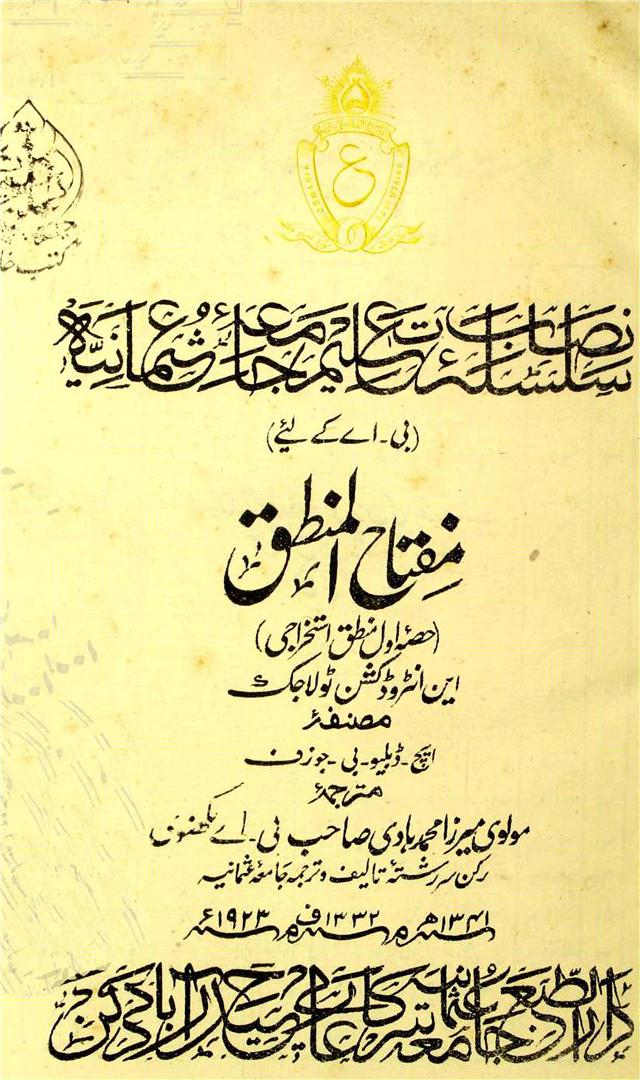 ع
سلسلۂ نصابات تعلیم جامعۂ عثمانیہ
(بی۔اے کے لئے)
مفتاح المنطق
(حصۂ اول منطق استخراجی)
این انٹروڈکشن ٹو لاجک
مصنفۂ
ایچ۔ڈبلیو۔بی۔جوزف
مترجمۂ
مولوی میرزا محمد ہادی صاحب بی۔اے لکھنوی
رکن سررشتۂ تالیف و ترجمہ جامعۂ عثمانیہ
۱۳۴۱ھ م ۱۳۳۲ف م ۱۹۲۳ء
دارالطبع جامعہ عثمانیہ سرکار عالی حیدرآباد دکن